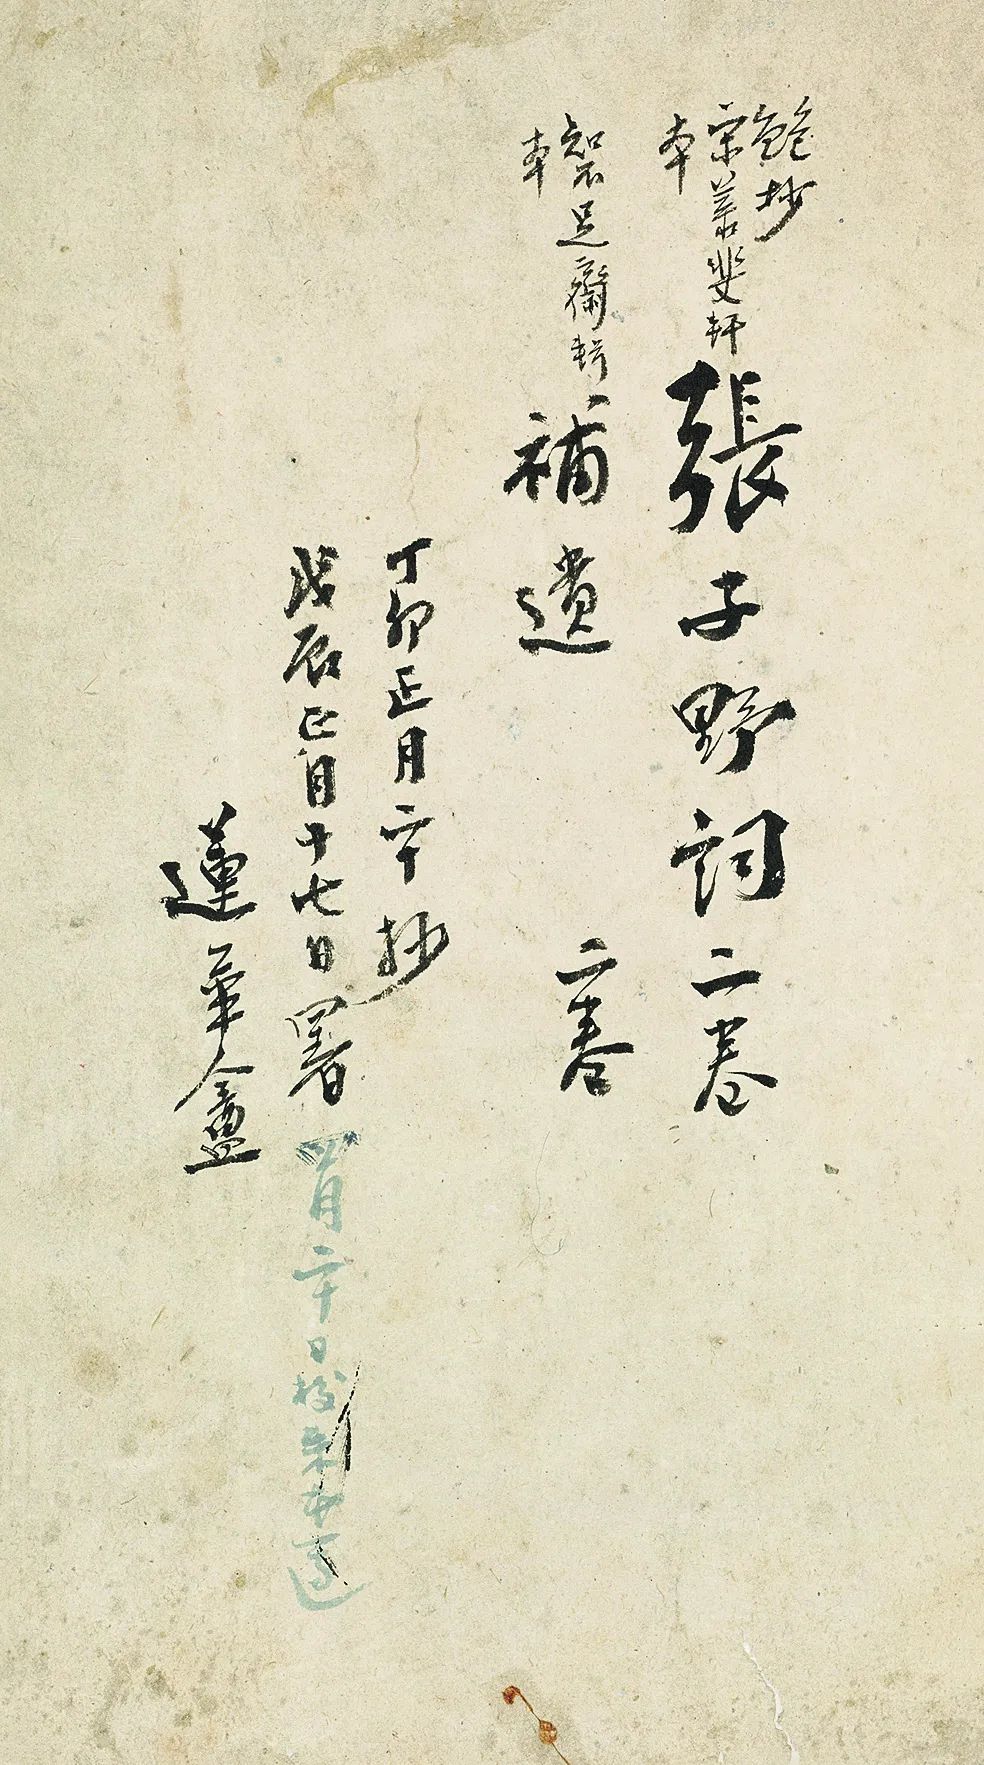 鮑抄
宋菉斐軒
本
張子野詞二卷
知不足齋輯
本
補遺二卷
丁卯正月二十抄
戊辰正月十七日署
四月二十日校朱本過
蓮華盦